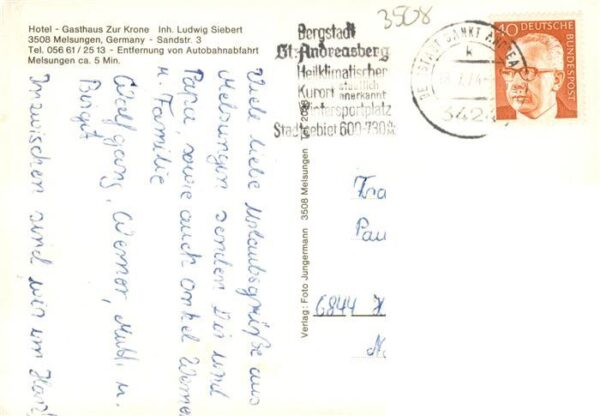 Hotel - Gasthaus Zur Krone   Inh. Ludwig Siebert
3508 Melsungen, Germany - Sandstr. 3
Tel. 056 61 / 25 13 - Entfernung von Autobahnabfahrt
Melsungen ca. 5 Min.
3508
Bergstadt
St. Andreasberg
Heilklimatischer
Kurort staatlich anerkannt
Wintersportplatz
Stadtgebiet 600-730
BERGSTADT SANKT ANDREA
k
3424
40 DEUTSCHE
BUNDESPOST
Viele liebe Urlaubsgrüße aus
Melsungen senden Dir und
Papa, sowie auch Onkel Werner
u. Familie
Wolfgang, Werner, Mutti u.
Birgit
Inzwischen sind wir im Harz
Verlag: Foto Jungermann 3508 Melsungen
Fra
Pau
6844 H
N